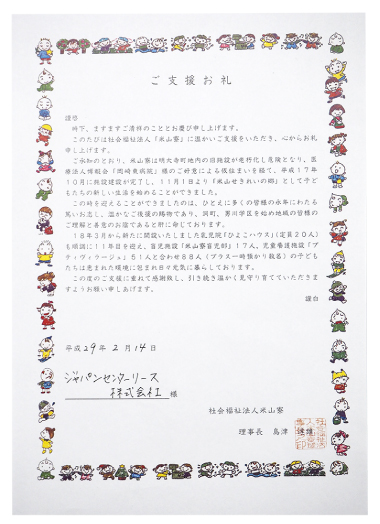 ご支援お礼
謹啓
時下、ますますご清祥のこととお慶び申し上げます。
このたびは社会福祉法人『米山寮』に温かいご支援をいただき、心からお礼
申し上げます。
ご承知のとおり、米山寮は明大寺町地内の旧施設が老朽化し危険となり、医
療法人博報会『岡崎東病院』様のご好意による仮住まいを経て、平成17年
10月に施設建設が完了し、11月1日より『米山せきれいの郷』として子ど
もたちの新しい生活を始めることができました。
この時を迎えることができましたのは、ひとえに多くの皆様の永年にわたる
篤いお志し、温かなご援護の賜物であり、洞町、男川学区を始め地域の皆様の
ご理解と善意のお陰であると肝に命じております。
18年3月から新たに開設いたしました乳児院『ひよこハウス』(定員20人)
も順調に11年目を迎え、盲児施設『米山寮盲児部』17人、児童養護施設『プ
ティヴィラージュ』51人と合わせ88人(プラス一時預かり数名)の子ども
たちは恵まれた環境に包まれ日々元気に暮らしております。
この度のご支援に重ねて感謝致し、引き続き温かく見守り育てていただきま
すようお願い申しあげます。
謹白
平成29年2月14日
ジャパンセンターリース
株式会社 様
社会福祉法人米山寮
理事長 島津